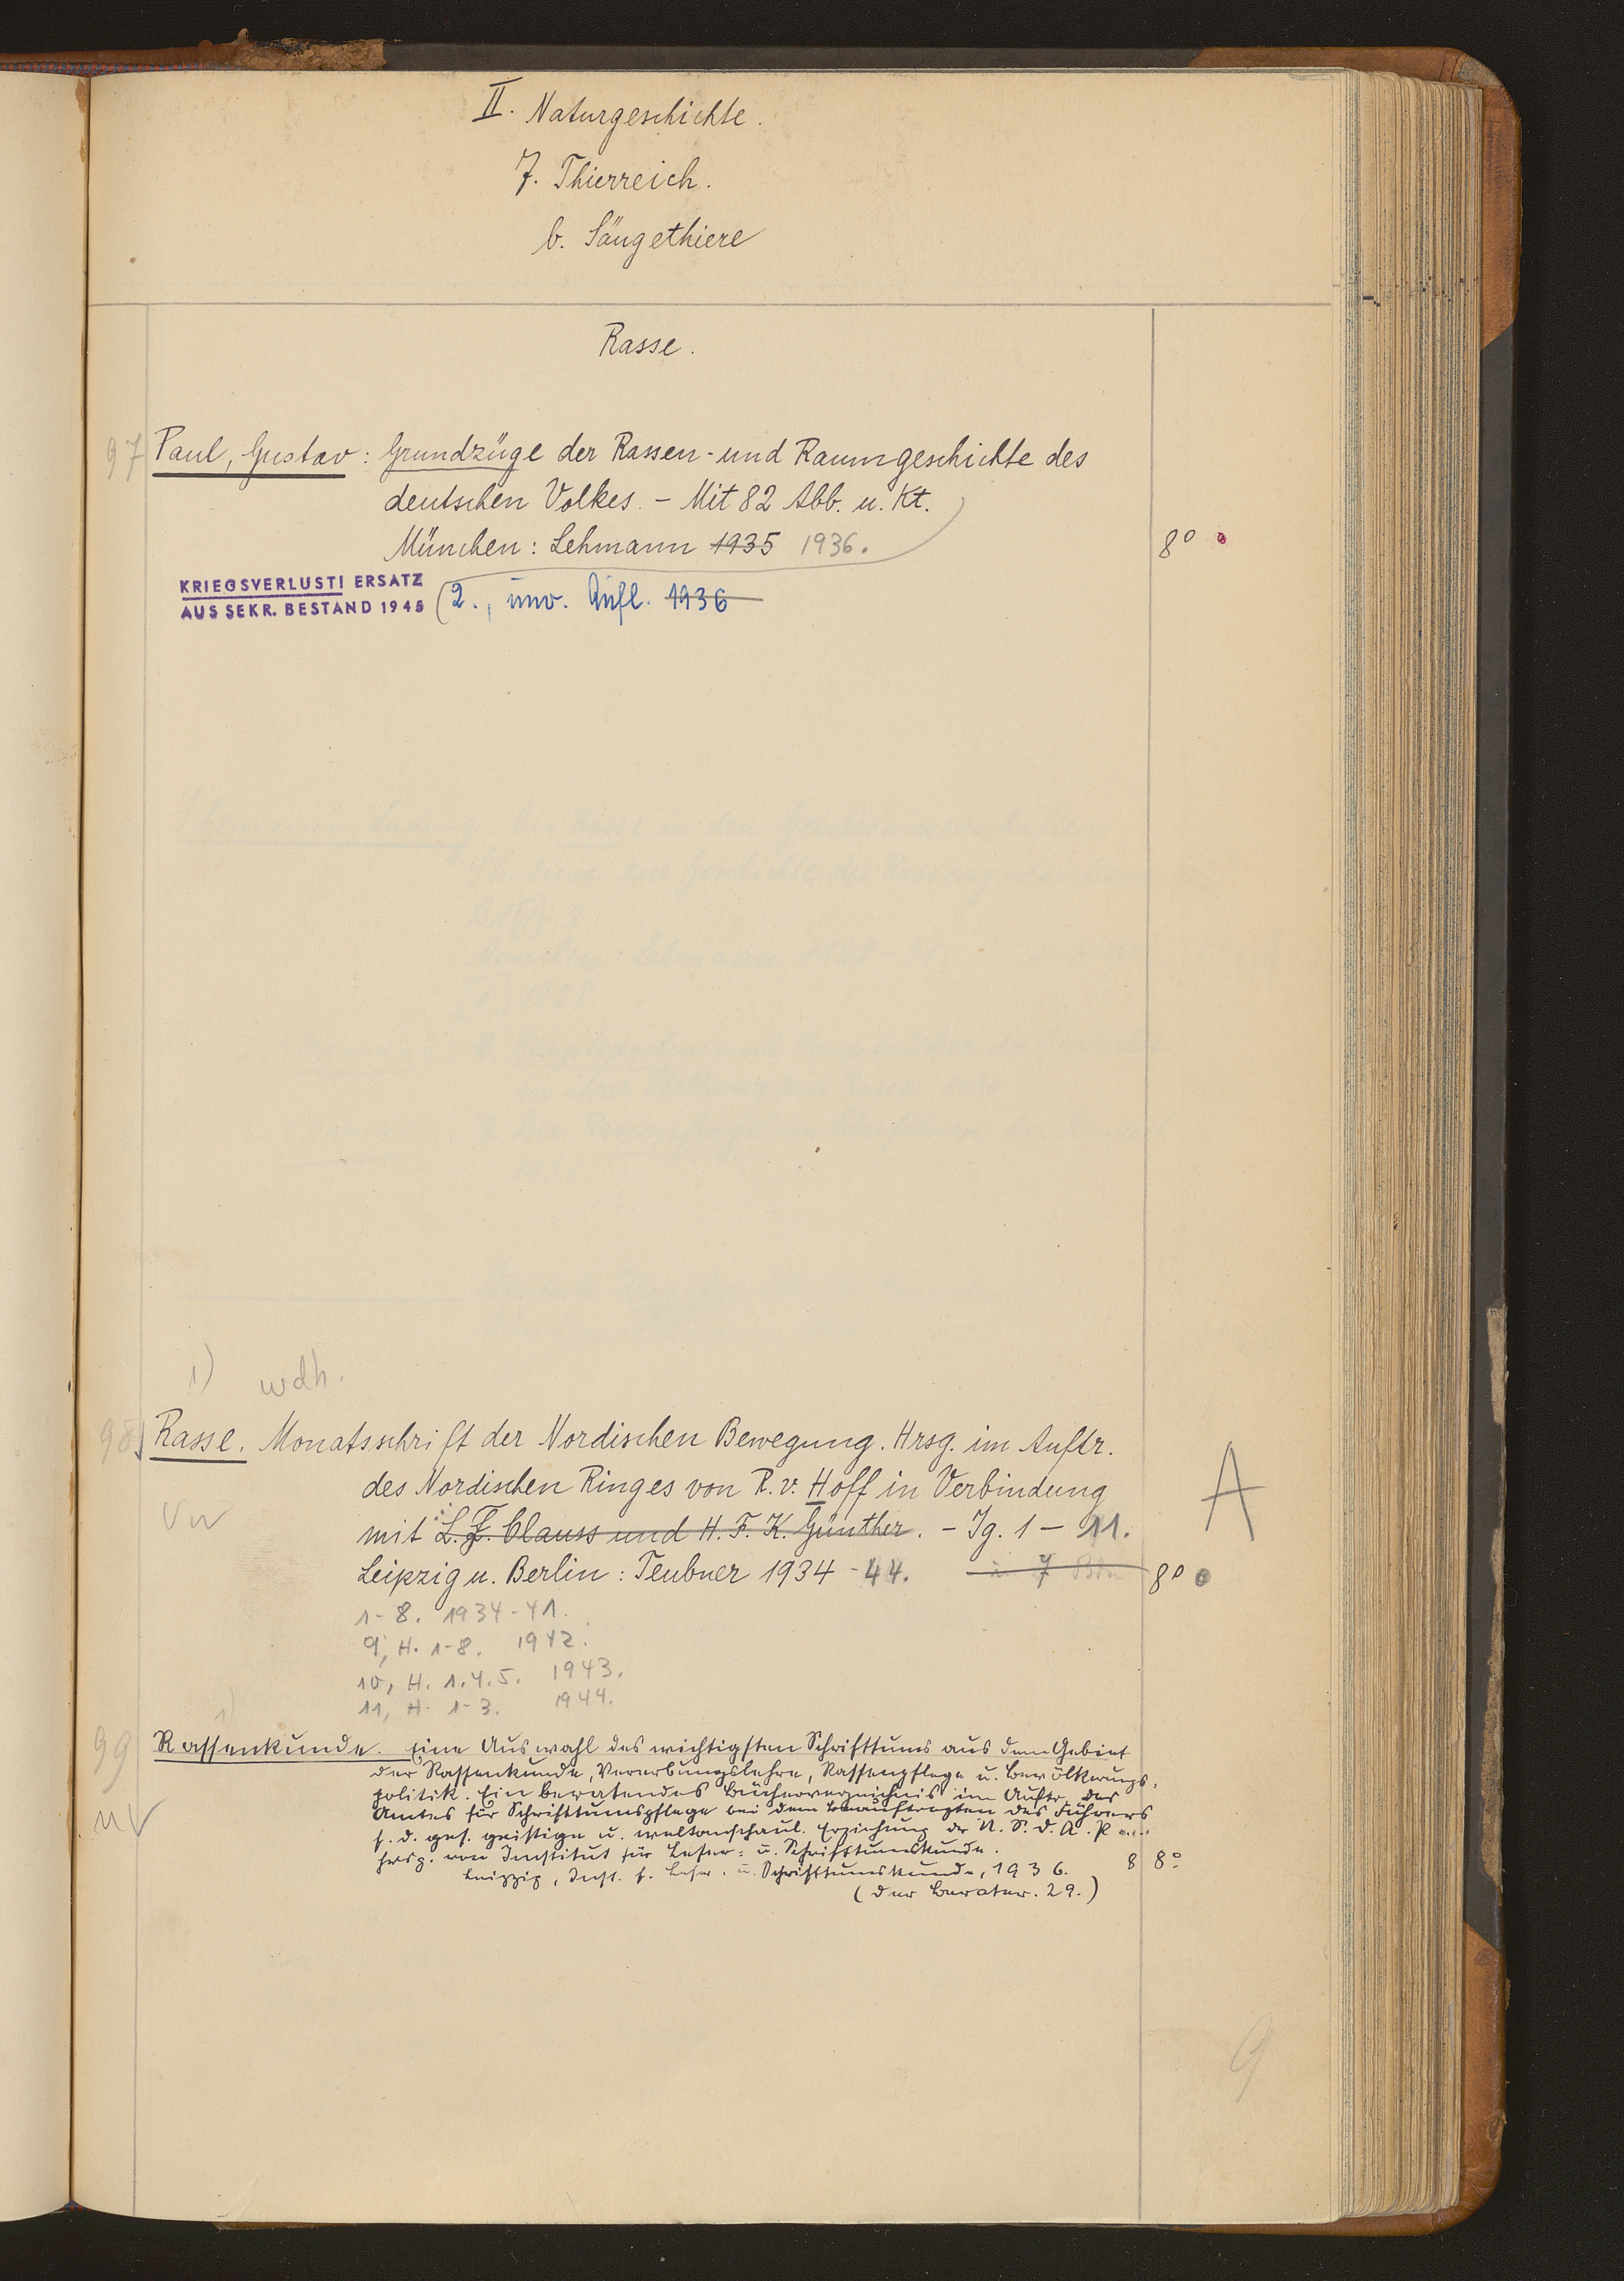 II. Naturgeschichte.
7. Thierreich.
b. Säugethiere
Rasse.
97 Paul, Gustav: Grundzüge der Rassen- und Raumgeschichte des
deutschen Volkes. - Mit 82 Abb. u. Kt.
München: Lehmann 1935 1936. 8°
KRIEGSVERLUST! ERSATZ
AUS SEKR. BESTAND 1945
(2., unv. Aufl. 1936
1) wdh.
98 Rasse. Monatsschrift der Nordischen Bewegung. Hrsg. im Auftr.
des Nordischen Ringes von R. v. Hoff in Verbindung
mit L. F. Clauss und H. F. K. Günther. - Jg. 1 - 11.
Leipzig u. Berlin: Teubner 1934 - 44. 7 Bdn 8°
A
1-8. 1934-41.
9, H. 1-8. 1942.
10, H. 1.4.5. 1943.
11, H. 1-3. 1944.
1)
99 Rassenkunde. Eine Auswahl des wichtigsten Schrifttums aus dem Gebiet
der Rassenkunde, Vererbungslehre, Rassenpflege u. Bevölkerungs-
politik. Ein beratendes Bücherverzeichnis im Auftr. des
Amtes für Schrifttumspflege bei dem Beauftragten des Führers
f. d. ges. geistige u. weltanschaul. Erziehung der N. S. D. A. P
hrsg. vom Institut für Leser- u. Schrifttumskunde. 8 8°
Leipzig, Inst. f. Leser- u. Schrifttumskunde, 1936.
(Der Berater. 29.)
9